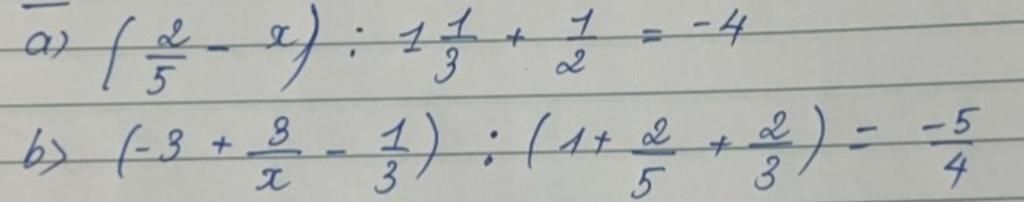 a) (2/5 - x) : 1 1/3 + 1/2 = -4
b) (-3 + 3/x - 1/3) : (1 + 2/5 + 2/3) = -5/4